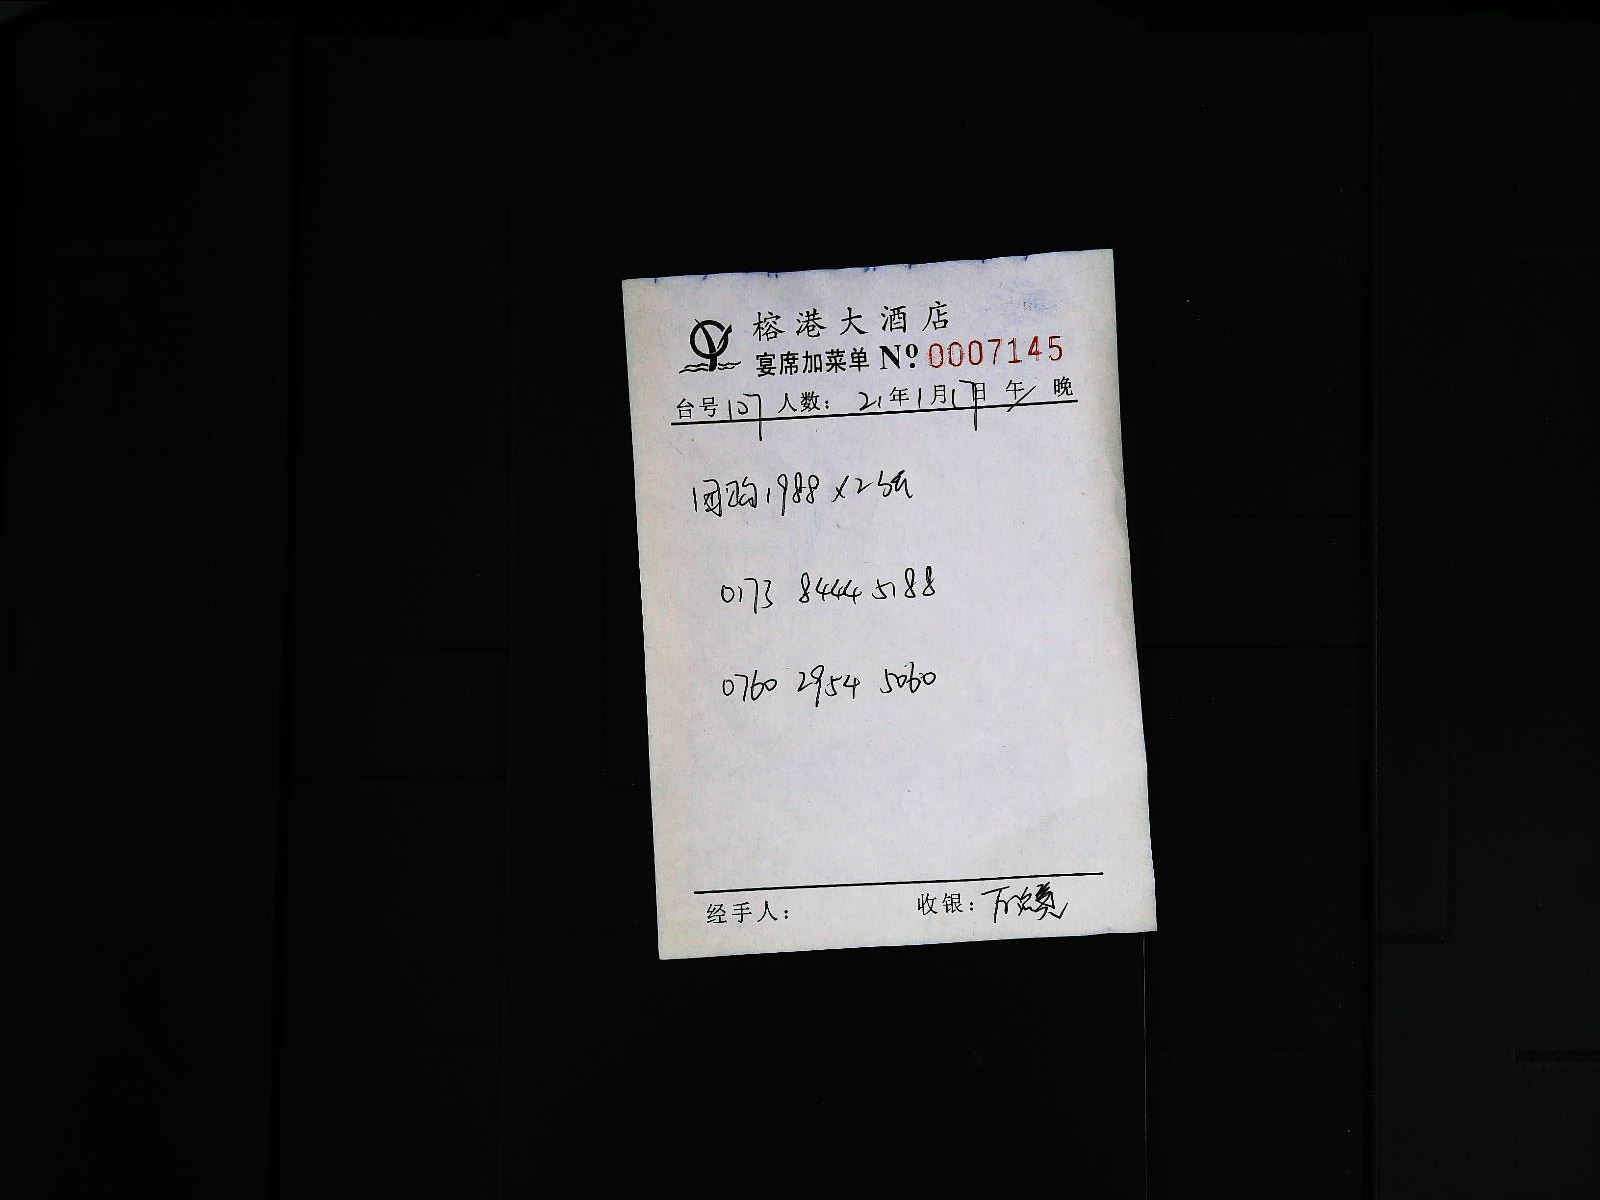 榕港大酒店
宴席加菜单 Nº 0007145
台号 107 人数: 21年1月17日 午 晚
团购1988×2张
0173 8444 5188
0760 2954 5060
经手人: 收银: